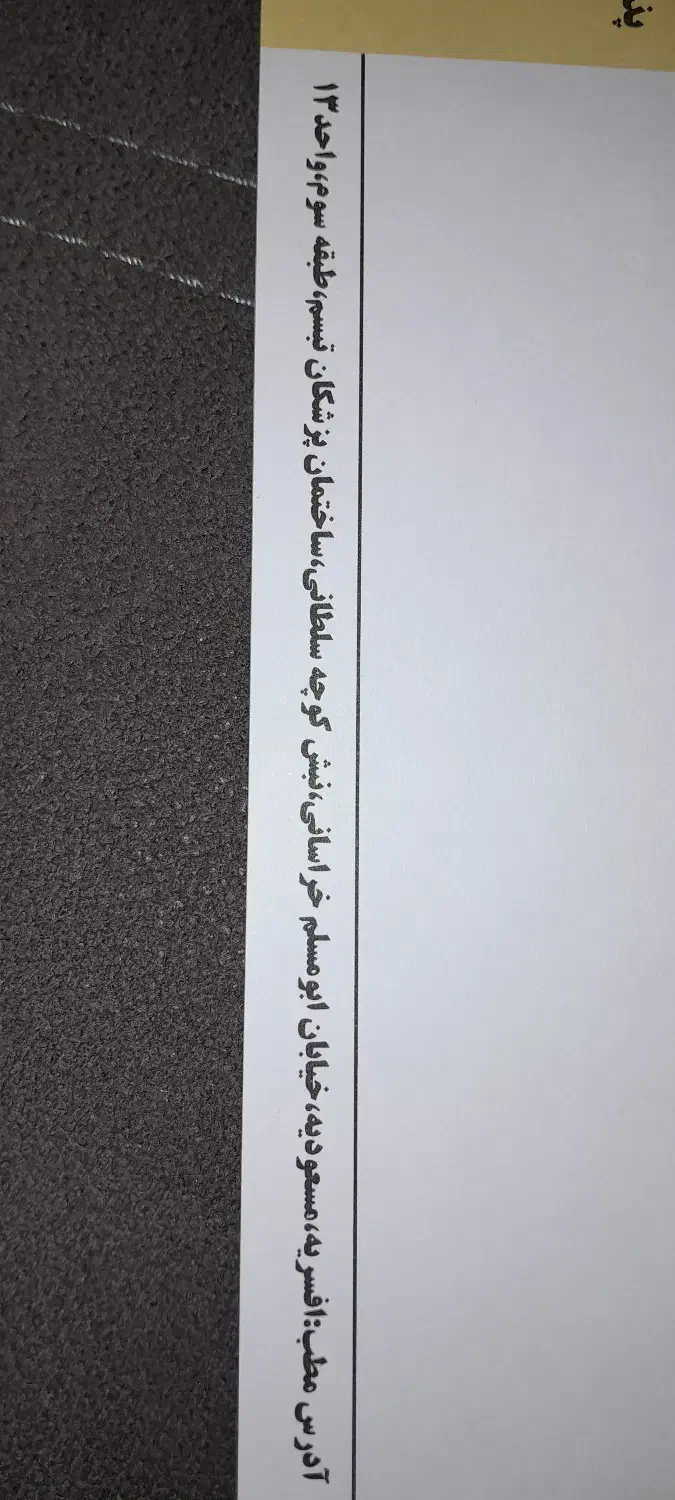 آدرس مطب:افسریه،مسعودیه،خیابان ابومسلم خراسانی،نبش کوچه سلطانی،ساختمان پزشکان تبسم،طبقه سوم،واحد۱۳